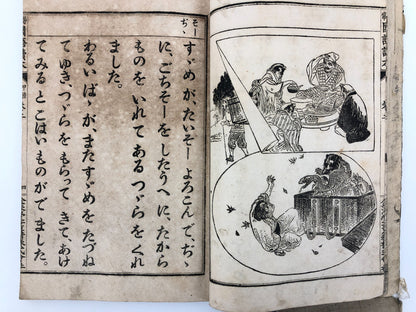 すゞめ が、たいそー よろこん で、ぢゝ
に、ごちそー を したうへ に、たから
もの を いれて ある つゞら を くれ
ました。
わるい ばゝ が、また すゞめ を たづね
て ゆき つゞら を もらって きて あけ
て みる と こはい もの が で ました。
そー
ぢゝ